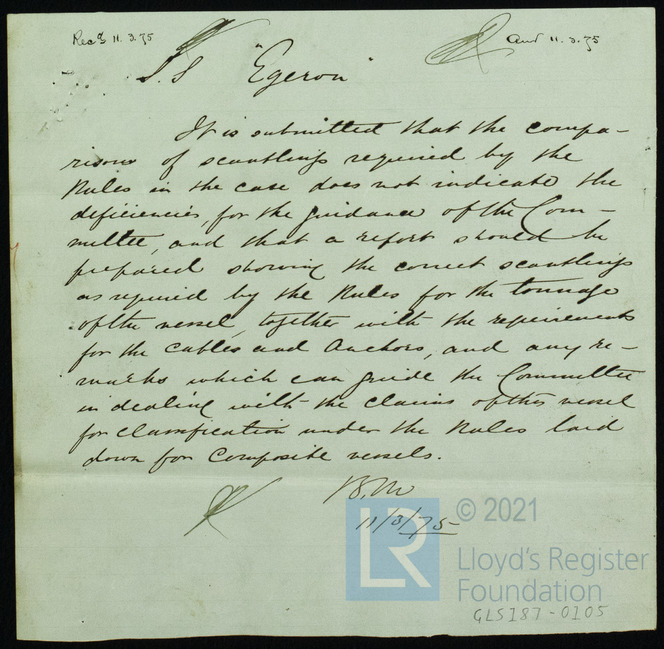 Recd 11.3.75
Ansd 11.3.75
S.S "Egeron"
It is submitted that the compa-
rison of scantlings required by the
Rules in the case does not indicate the
deficiencies, for the guidance of the Com-
mittee, and that a report should be
prepared showing the correct scantlings
as required by the Rules for the tonnage
of the vessel, together with the requirements
for the Cables and Anchors, and any re-
marks which can guide the Committee
in dealing with the claims of this vessel
for classification under the Rules laid
down for Composite vessels.
B.M
11/3/75
LR
© 2021
Lloyd's Register
Foundation
GLSI87-0105